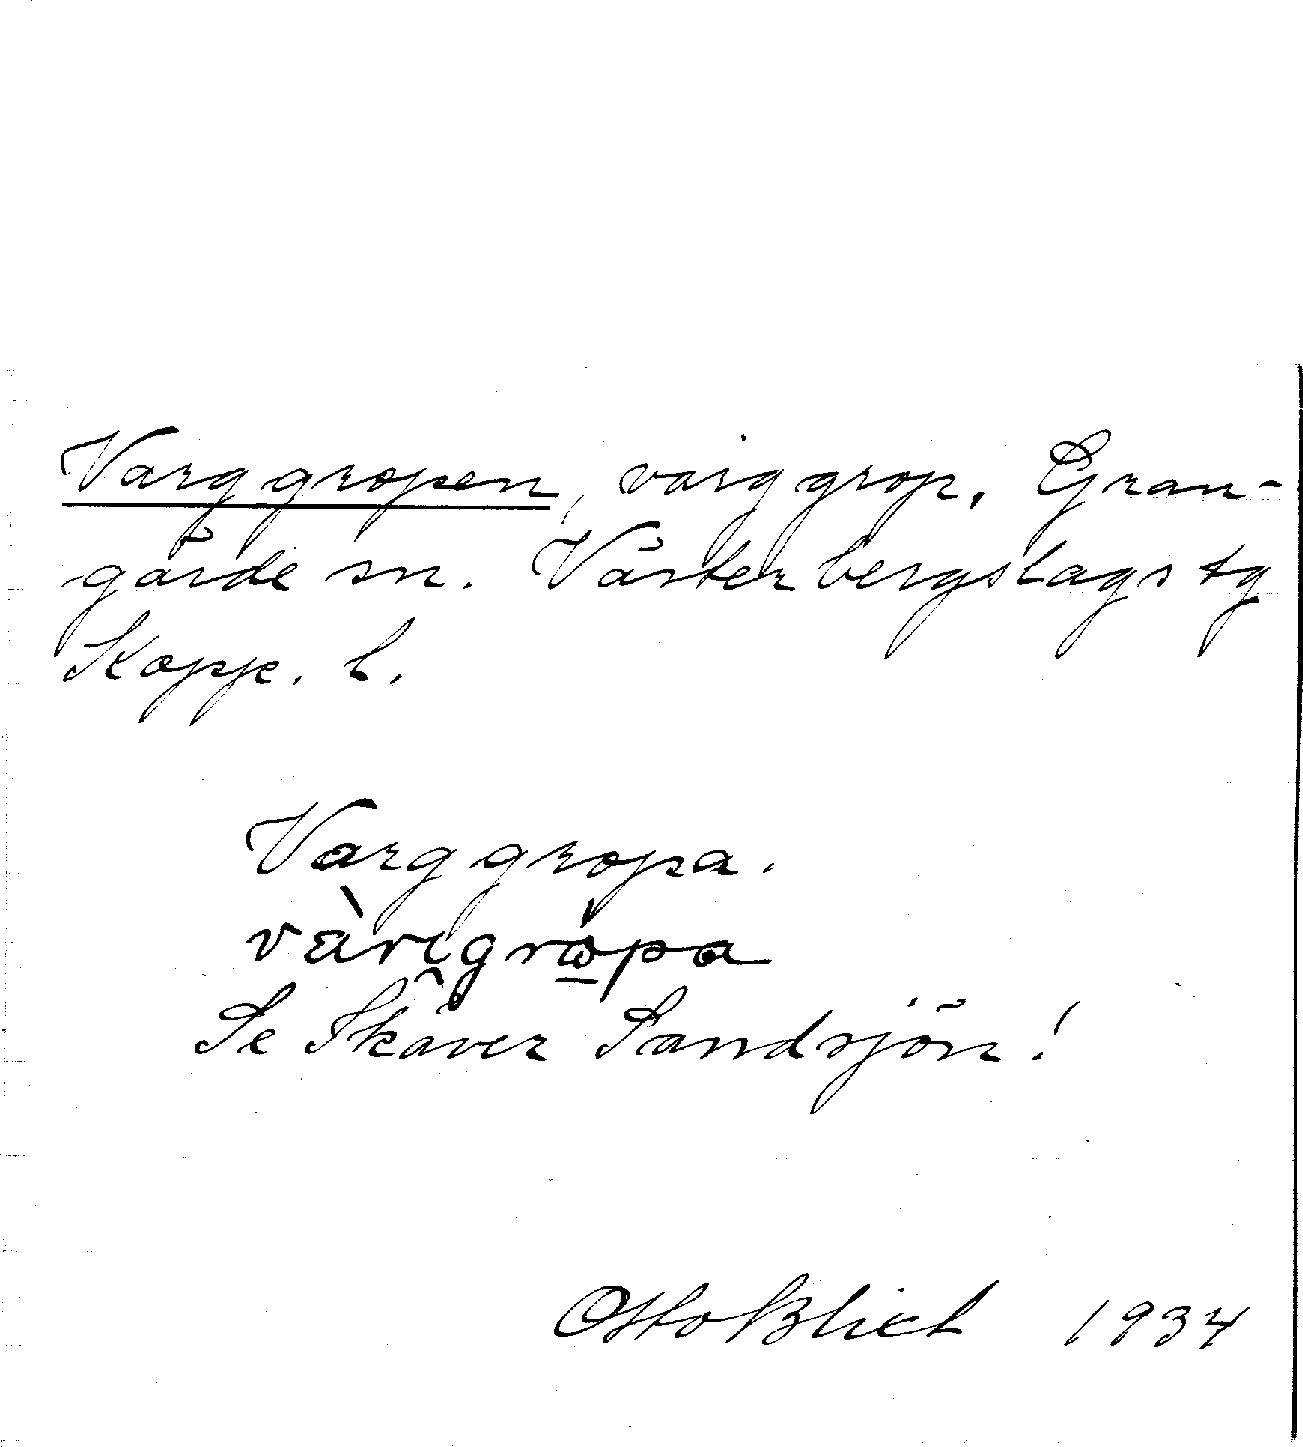 Varggropen, varggrop. Gran-
gärde sn. Västerbergslags tg
Kopp. l.
Varggropa.
Se Skäver Sandsjön!
Otto Blixt 1934